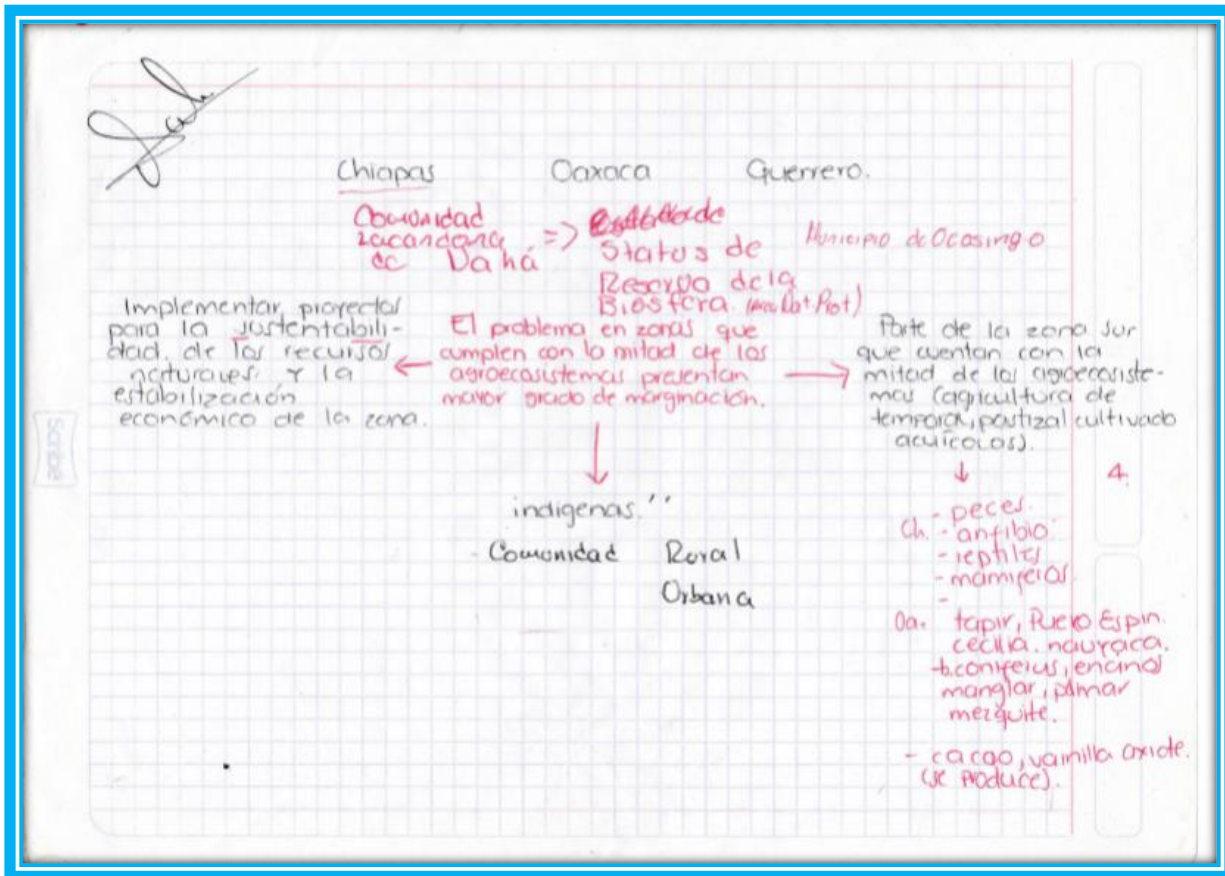 Chiapas Oaxaca Guerrero.
Comunidad
Lacandona
de Nahá
=> Status de
Reserva de la
Biosfera.
Municipio de Ocosingo
Implementar proyectos
para la sustentabili-
dad. de los recursos
naturales. Y la
estabilización
económico de la zona.
El problema en zonas que
cumplen con la mitad de los
agroecosistemas presentan
mayor grado de marginación.
Parte de la zona sur
que cuentan con la
mitad de los agroecosiste-
mas (agricultura de
temporal, pastizal cultivado
acuícolas).
indigenas.''
- Comunidad Rural
Urbana
4.
- peces.
Ch. - anfibio
- reptiles
- mamiferos.
-
Oa. tapir, Puerco Espin.
cecilia. nauyaca.
-b.coniferus, encinal
manglar, palmar
mezquite.
- cacao, vainilla axiote.
(se produce).
Scribe